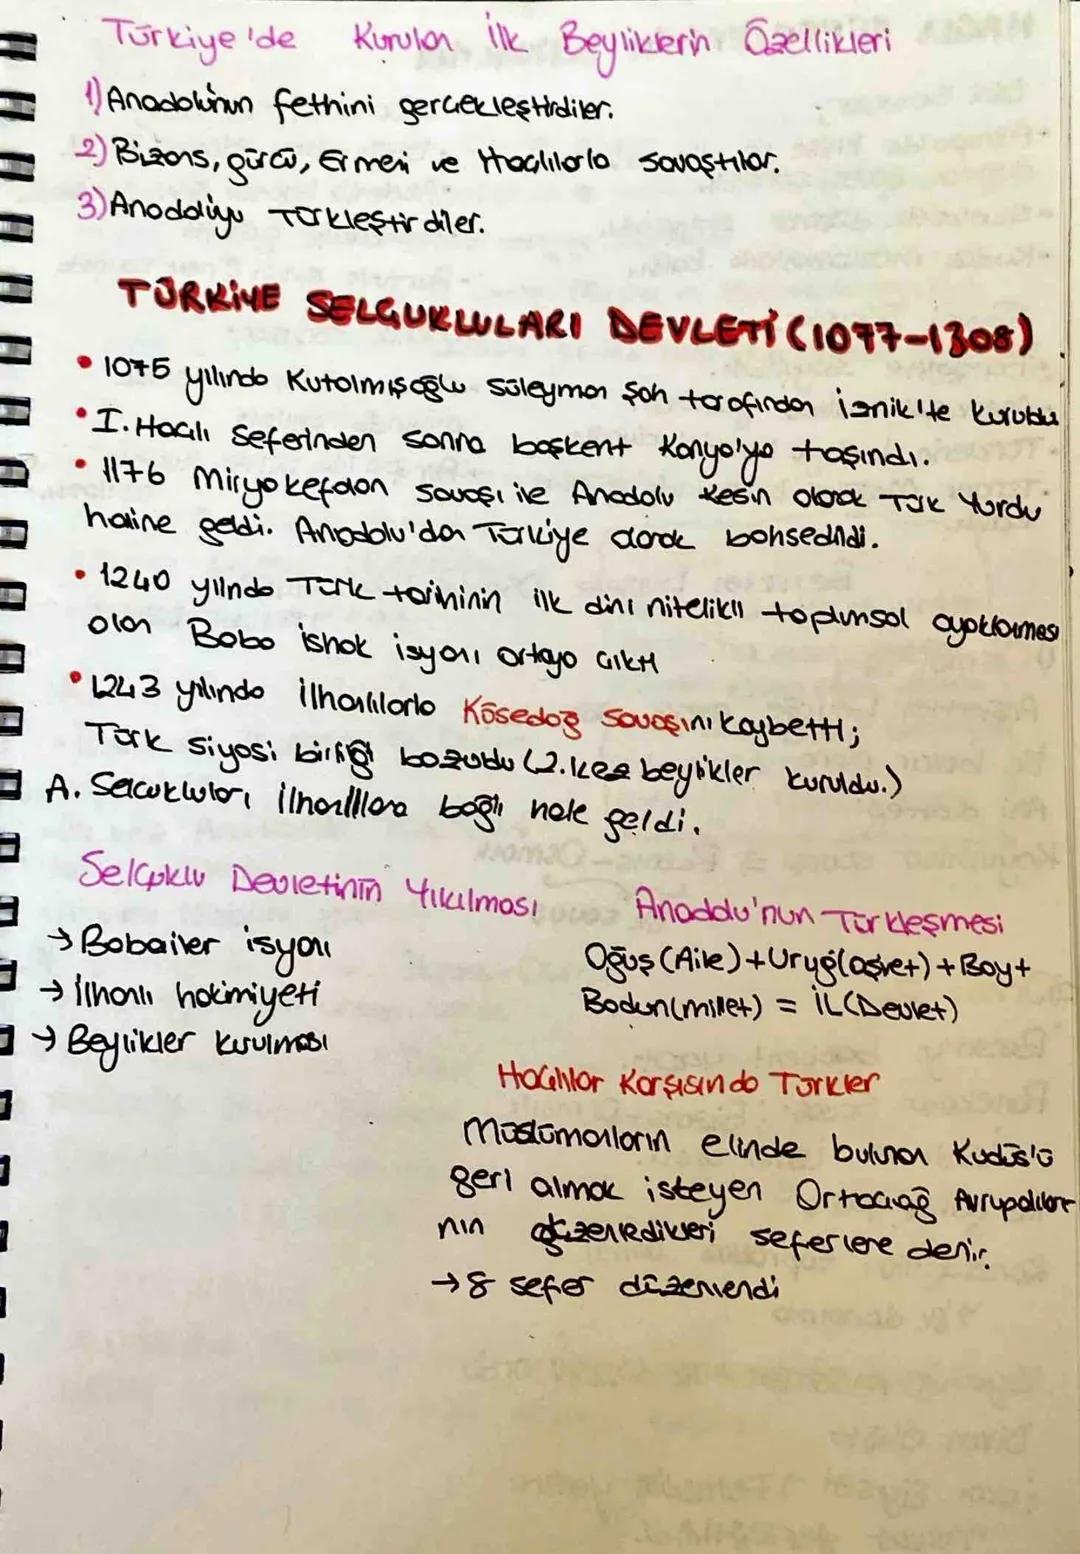 Türkiye'de Kurulan İlk Beyliklerin Özellikleri
1) Anadolunun fethini gerçekleştirdiler.
2) Bizans, gürcü, Ermeni ve Haçlılarla savaştılar.
3) Anadoluyu Türkleştirdiler.
TÜRKİYE SELÇUKLULARI DEVLETİ (1077-1308)
• 1075 yılında Kutalmışoğlu Süleyman Şah tarafından İznik'te kuruldu
• I. Haçlı Seferinden sonra başkent Konya'ya taşındı.
• 1176 Miryokefalon savaşı ile Anadolu kesin olarak Türk Yurdu
haline geldi. Anadolu'dan Türkiye olarak bahsedildi.
• 1240 yılında Türk tarihinin ilk dini nitelikli toplumsal ayaklanması
olan Baba ishak isyanı ortaya çıktı
• 1243 yılında ilhanlılarla Kösedağ savaşını kaybetti;
Türk siyasi birliği bozuldu (2.kez beylikler kuruldu.)
A. Selçukluları ilhanlılara bağlı hale geldi.
Selçuklu Devletinin Yıkılması
→ Babailer isyanı
→ ilhanlı hakimiyeti
→ Beylikler kurulması
Anadolu'nun Türkleşmesi
Oğuş (Aile) + Uruğ (aşiret) + Boy +
Bodun (millet) = İL (Devlet)
Haçlılar Karşısında Türkler
Müslümanların elinde bulunan Kudüs'ü
geri almak isteyen Ortaçağ Avrupalıları
nın düzenledikleri seferlere denir.
→ 8 sefer düzenlendi